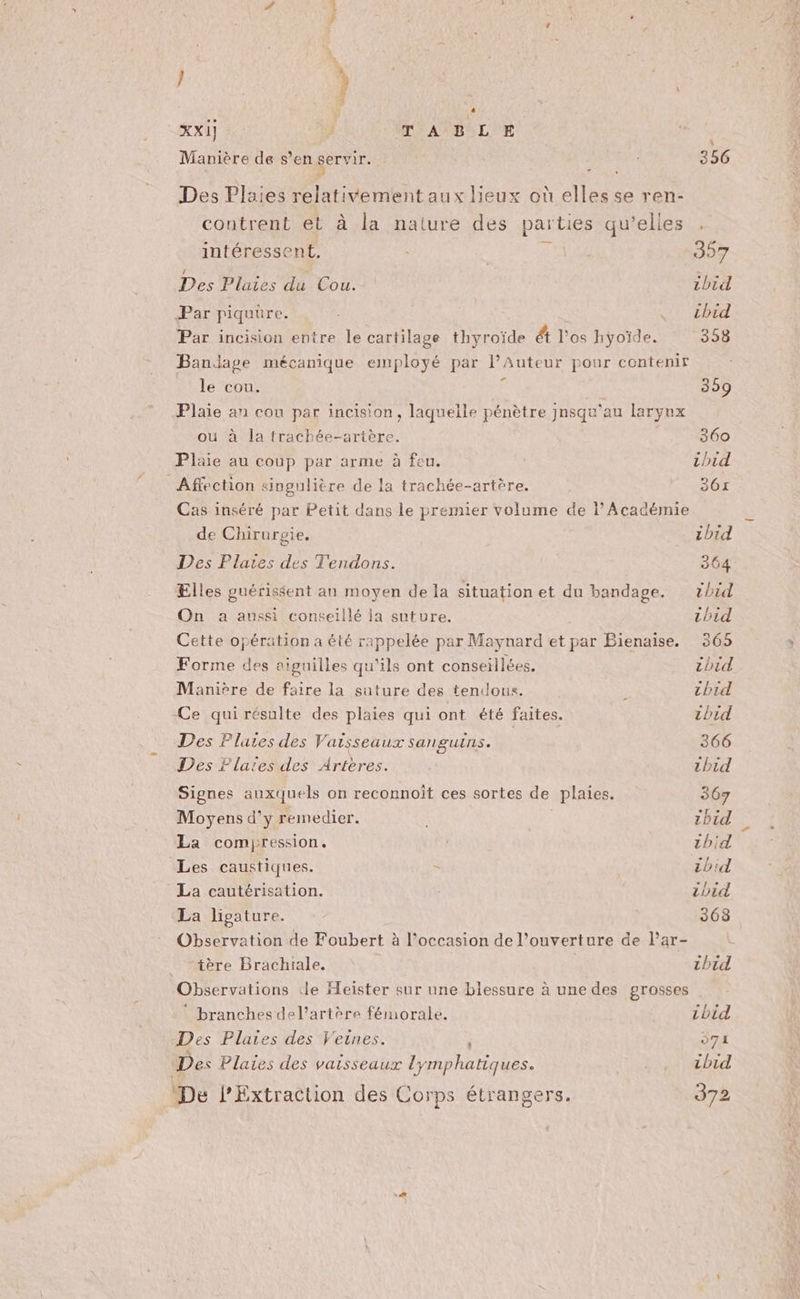 xxij TABLE
Manière de s'en servir. 356
Des Plaies relativement aux lieux où elles se ren-
contrent et à la nature des parties qu'elles
intéressent. 357
Des Plaies du Cou. ibid
Par piquûre. ibid
Par incision entre le cartilage thyroïde et l'os hyoïde. 358
Bandage mécanique employé par l'Auteur pour contenir
le cou. 359
Plaie au cou par incision, laquelle pénètre jusqu'au larynx
ou à la trachée-artère. 360
Plaie au coup par arme à feu. ibid
Affection singulière de la trachée-artère. 361
Cas inséré par Petit dans le premier volume de l'Académie
de Chirurgie. ibid
Des Plaies des Tendons. 364
Elles guérissent au moyen de la situation et du bandage. ibid
On a aussi conseillé la suture. ibid
Cette opération a été rappelée par Maynard et par Bienaise. 365
Forme des aiguilles qu'ils ont conseillées. ibid
Manière de faire la suture des tendous. ibid
Ce qui résulte des plaies qui ont été faites. ibid
Des Plaies des Vaisseaux sanguins. 366
Des Plaies des Artères. ibid
Signes auxquels on reconnoît ces sortes de plaies. 367
Moyens d'y remedier. ibid
La compression. ibid
Les caustiques. ibid
La cautérisation. ibid
La ligature. 368
Observation de Foubert à l'occasion de l'ouverture de l'ar-
tère Brachiale. ibid
Observations de Heister sur une blessure à une des grosses
branches de l'artère fémorale. ibid
Des Plaies des Veines. 371
Des Plaies des vaisseaux lymphatiques. ibid
De l'Extraction des Corps étrangers. 372